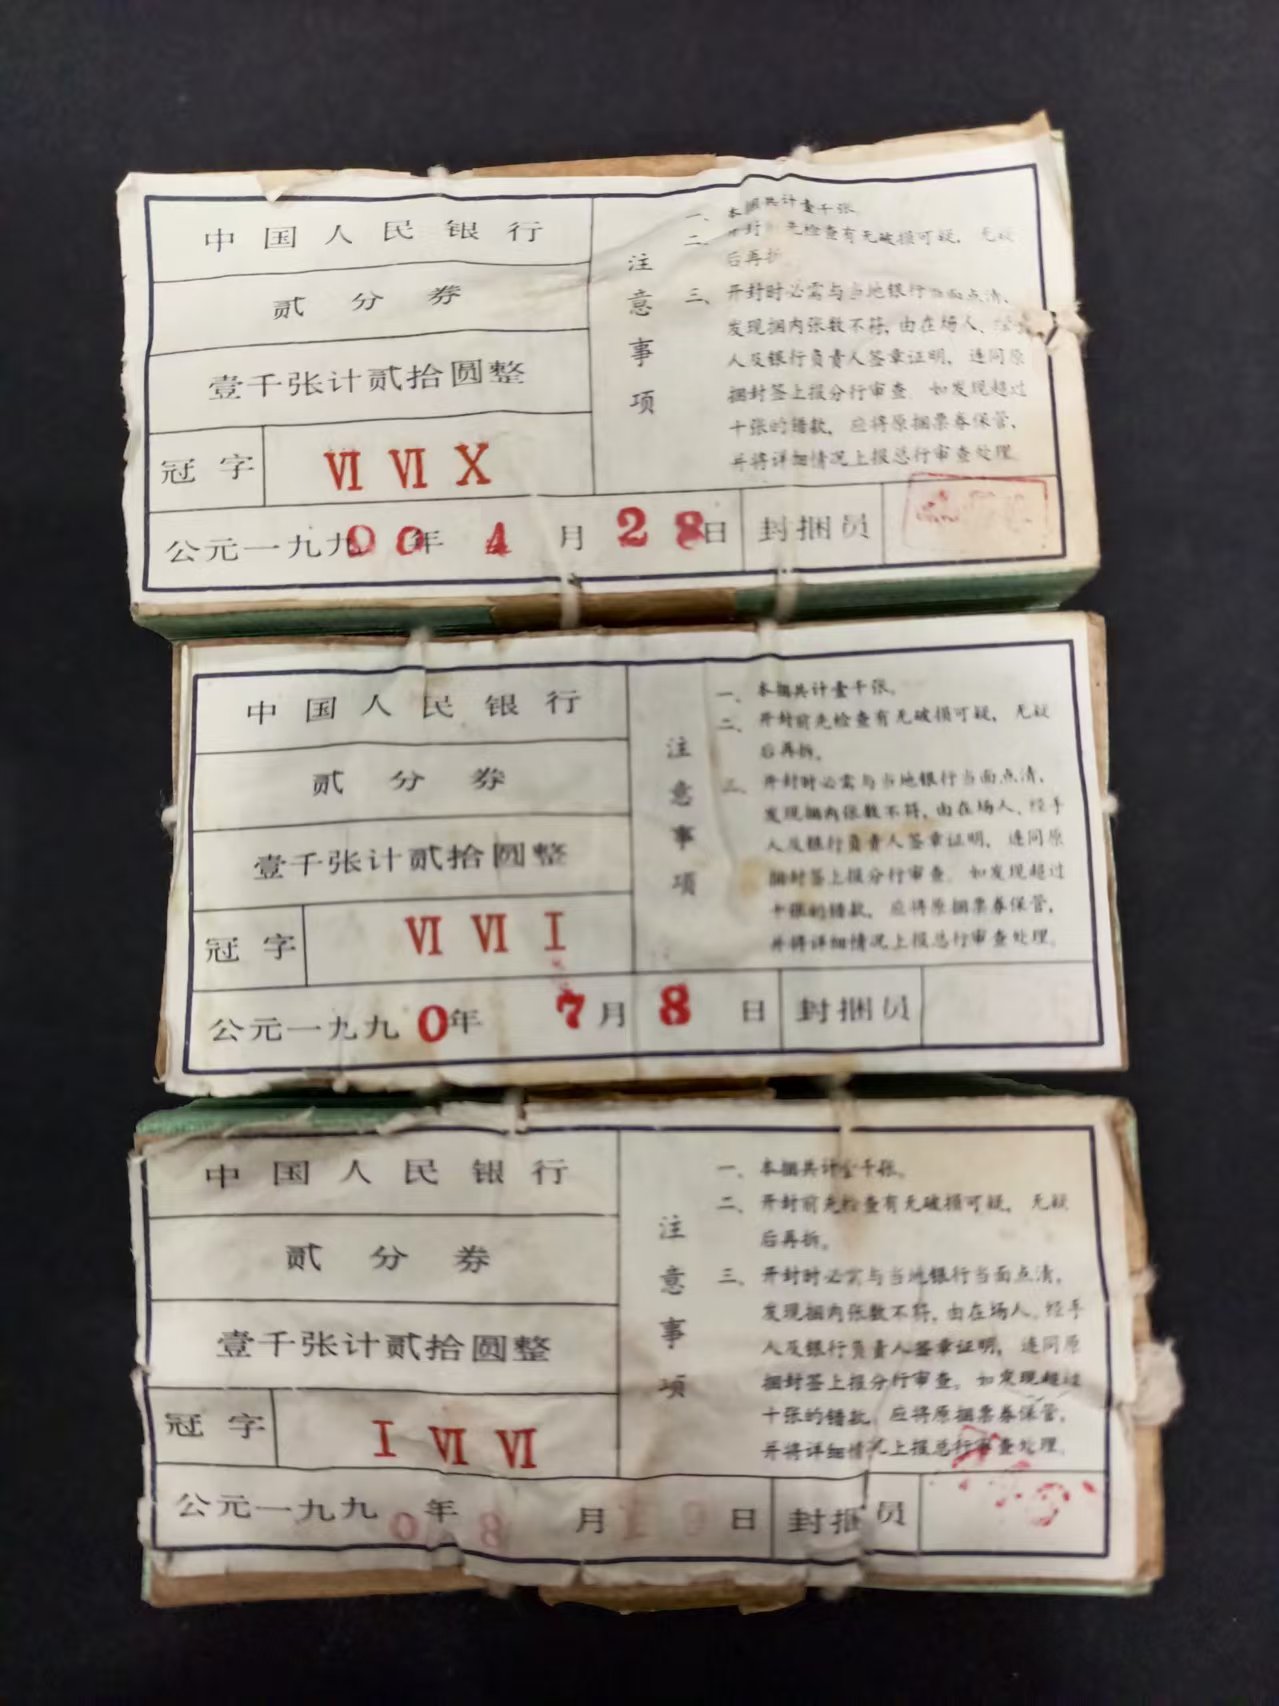 中国人民银行
贰分券
壹千张计贰拾圆整
冠字
VI VI X
公元一九九00年4月28日
封捆员
注意事项
一、本捆共计壹千张
二、开封 先检查有无破损可疑，无疑
后再拆
三、开封时必需与当地银行当面点清、
发现捆内张数不符，由在场人、经
人及银行负责人签章证明，连同原
捆封签上报分行审查。如发现超过
十张的错款，应将原捆票券保管，
并将详细情况上报总行审查处理
中国人民银行
贰分券
壹千张计贰拾圆整
冠字
VI VI I
公元一九九0年7月8日
封捆员
注意事项
一、本捆共计壹千张。
二、开封前先检查有无破损可疑，无疑
后再拆。
三、开封时必需与当地银行当面点清，
发现捆内张数不符，由在场人、经手
人及银行负责人签章证明，连同原
捆封签上报分行审查。如发现超过
十张的错款，应将原捆票券保管，
并将详细情况上报总行审查处理。
中国人民银行
贰分券
壹千张计贰拾圆整
冠字
I VI VI
公元一九九0年8月 日
封捆员
注意事项
一、本捆共计壹千张。
二、开封前先检查有无破损可疑，无疑
后再拆。
三、开封时必需与当地银行当面点清，
发现捆内张数不符，由在场人、经手
人及银行负责人签章证明，连同原
捆封签上报分行审查。如发现超过
十张的错款，应将原捆票券保管，
并将详细情况上报总行审查处理。